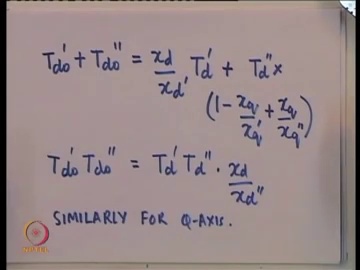 Tdo' + Tdo'' = xd/xd' Td' + Td'' ×
(1 - xq/xq' + xq/xq'')
Tdo' Tdo'' = Td' Td'' · xd/xd''
SIMILARLY FOR Q-AXIS.
NPTEL